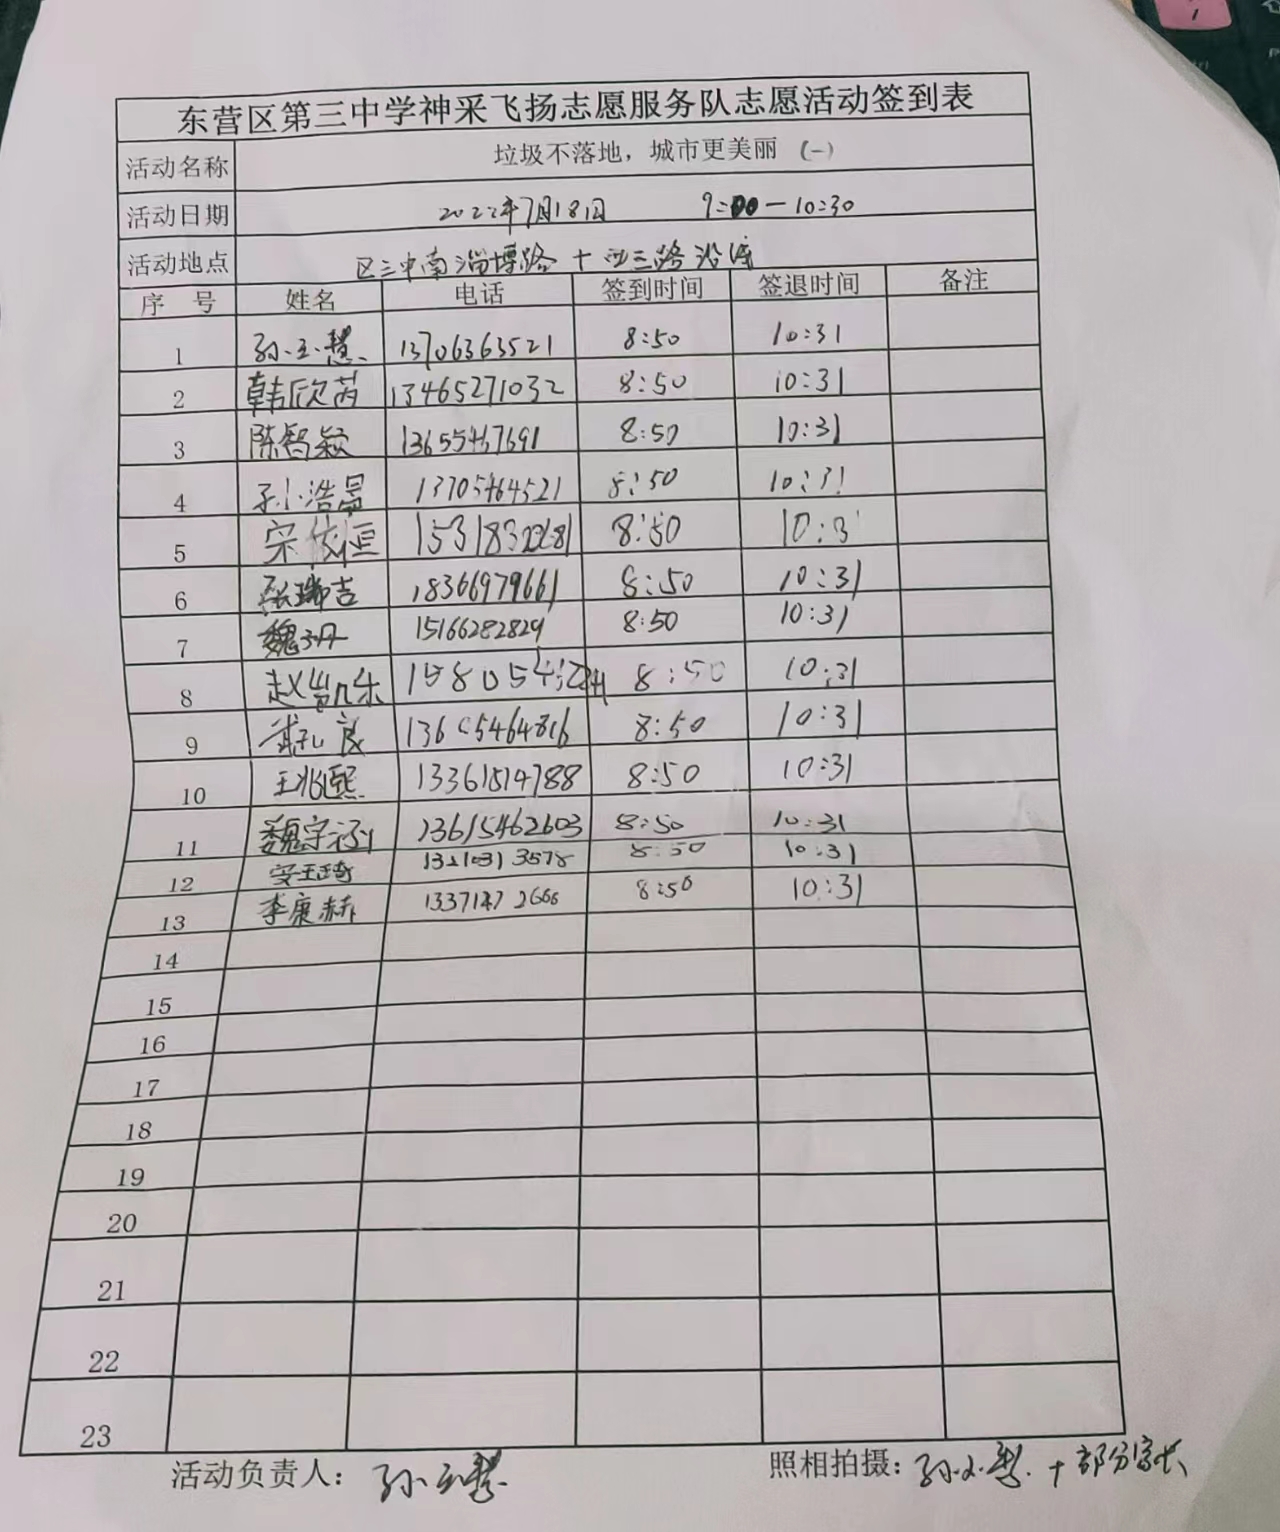 东营区第三中学神采飞扬志愿服务队志愿活动签到表
活动名称 垃圾不落地，城市更美丽 (一)
活动日期 2022年7月18日 9:00—10:30
活动地点 区三中南淄博路+西三路沿底
序 号 姓名 电话 签到时间 签退时间 备注
1 孙玉慧 13706363521 8:50 10:31
2 韩欣芮 13465271032 8:50 10:31
3 陈智颖 13655467691 8:50 10:31
4 孙浩景 13705464521 8:50 10:31
5 宋依恒 8:50 10:3
6 张瑞吉 18366979661 8:50 10:31
7 魏子丹 15166282829 8:50 10:31
8 赵 乐 8:50 10:31
9 8:50 10:31
10 王兆熙 13361514788 8:50 10:31
11 魏宇涵 13615462603 8:50 10:31
12 8:50 10:31
13 李康赫 8:50 10:31
14
15
16
17
18
19
20
21
22
23
活动负责人：孙玉慧 照相拍摄：孙玉慧+部分家长